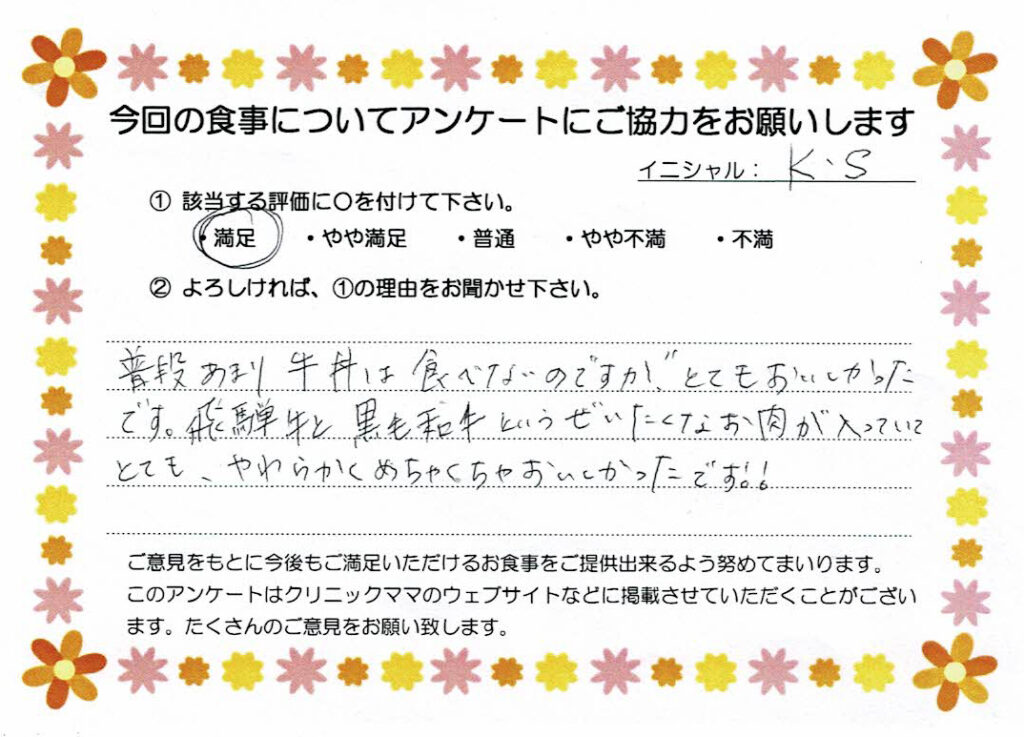 今回の食事についてアンケートにご協力をお願いします
イニシャル： K・S
① 該当する評価に〇を付けて下さい。
・満足　・やや満足　・普通　・やや不満　・不満
② よろしければ、①の理由をお聞かせ下さい。
普段あまり牛丼は食べないのですが、とてもおいしかった
です。飛騨牛と黒毛和牛というぜいたくなお肉が入っていて
とても、やわらかくめちゃくちゃおいしかったです!!
ご意見をもとに今後もご満足いただけるお食事をご提供出来るよう努めてまいります。
このアンケートはクリニックママのウェブサイトなどに掲載させていただくことがござい
ます。たくさんのご意見をお願い致します。